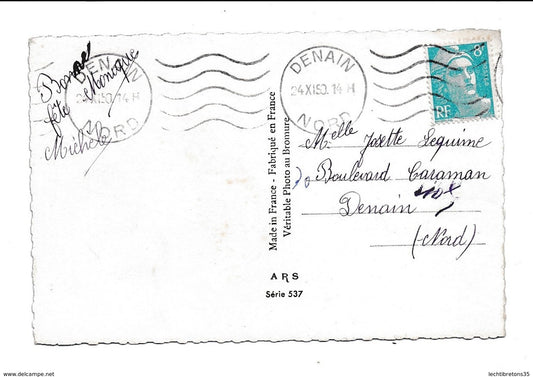 Bonne
fête Monique
Michèle
DENAIN
24 XI 50. 14 H
NORD
DENAIN
24 XI 50. 14 H
NORD
8F
RF
Made in France - Fabriqué en France
Véritable Photo au Bromure
Melle Josette Lequime
Boulevard Caraman
Denain
(Nord)
ARS
Série 537
https://www.delcampe.net
lechtibretons35